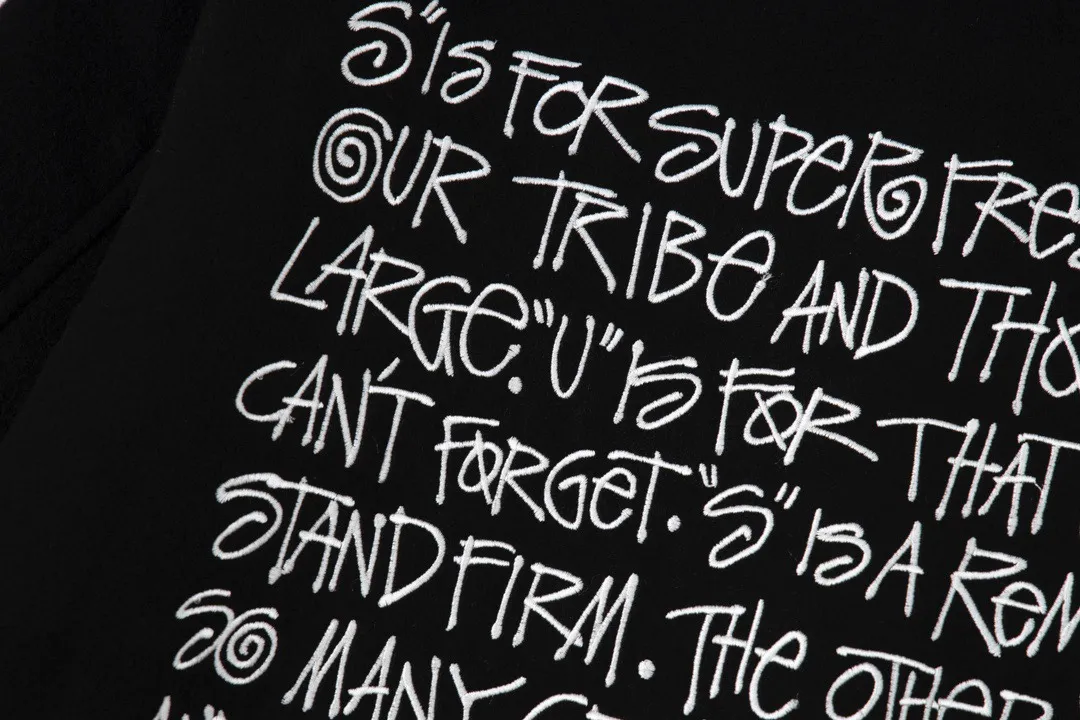 S" IS FOR SUPER FRE
OUR TRIBE AND THO
LARGE. "U" IS FOR THAT
CAN'T FORGET. "S" IS A REM
STAND FIRM. THE OTHER
SO MANY